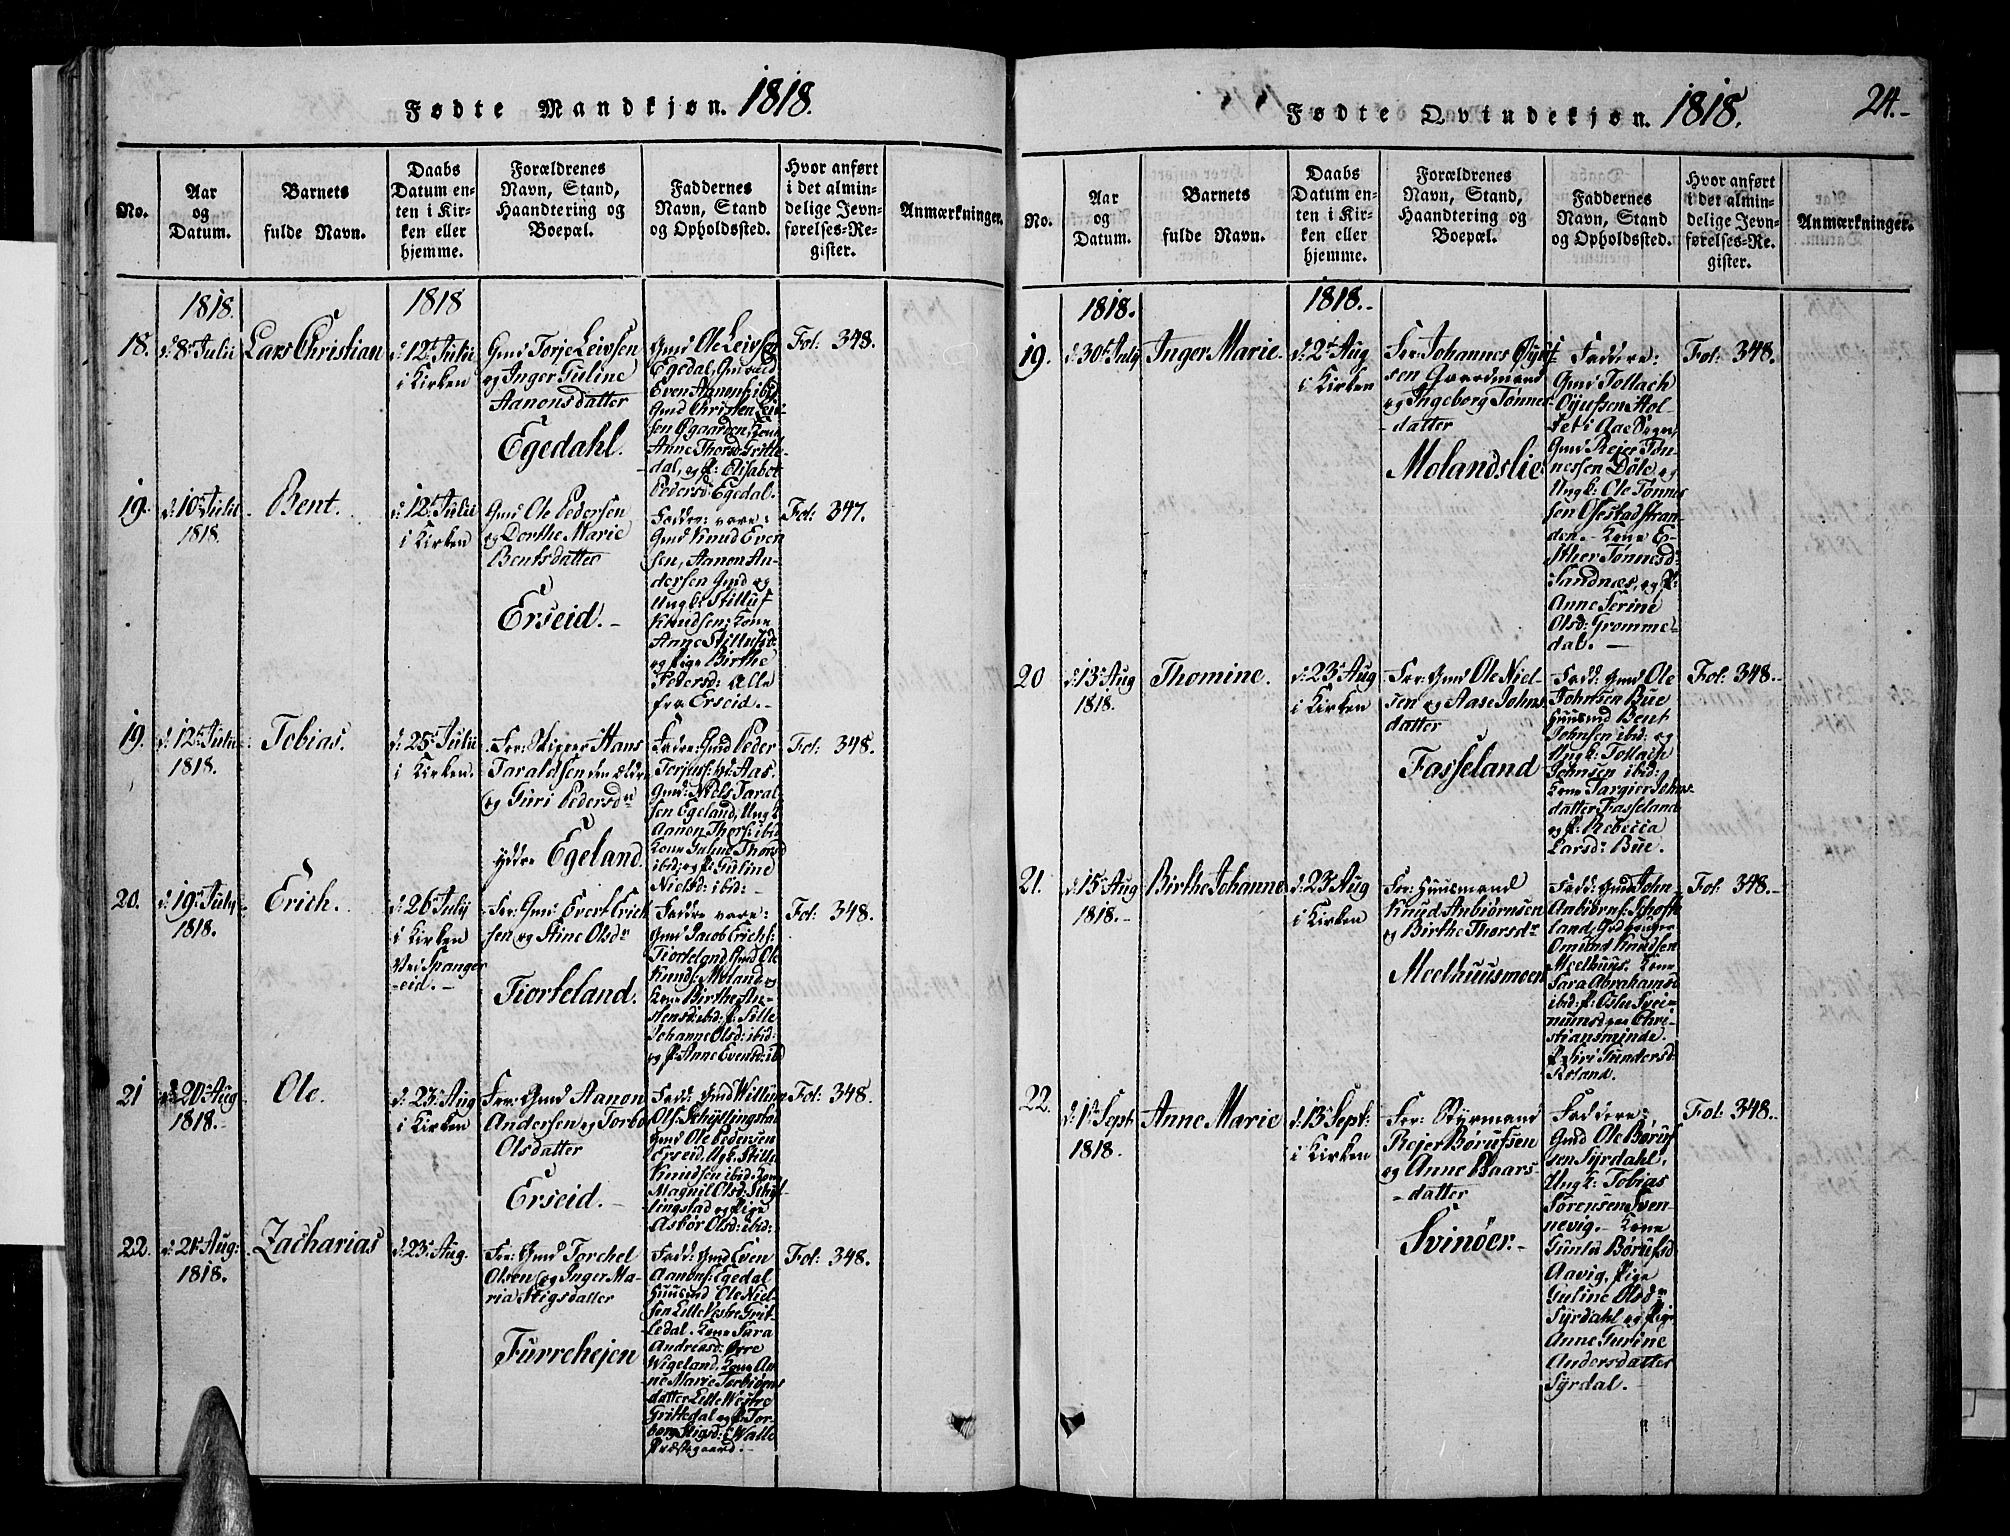 Fødte Mandkjøn. 1818.
No.
Aar
og
Datum.
Barnets
fulde Navn.
Daabs
Datum en-
ten i Kir-
ken eller
hjemme.
Forældrenes
Navn, Stand,
Haandtering og
Boepæl.
Faddernes
Navn, Stand
og Opholdssted.
Hvor anført
i det almin-
delige Jevn-
førelses-Re-
gister.
Anmærkninger.
1818.
1818
18.
d: 8de Julii
Lars Christian
d: 12te Julii
i Kirken
Gmd Torje Leivsen
og Inger Guline
Aanonsdatter
Egedahl.
Gmd Ole Leivsen
Egedal, Gmd
Even Aanons: ibid
Gmd Christen Lei-
sen Ogaarden, Kone
Anne Thorsd Gritte-
dal, og P: Elisabet
Pedersd: Egedal.
Fol: 348.
19.
d: 10de Julii
1818
Bent.
d: 12te Julii
i Kirken
Gmd Ole Pedersen
og Dorthe Marie
Bentsdatter
Erseid.-
Faddr: vare:
Gmd Knud Even
sen, Aanon An-
dersen Gmd og
Ungk: Stilluf
Knudsen; Kone
Anne Stillufsd:
og Pige Birthe
Pedersd: alle
fra Erseid.-
Fol: 347.
19.
d: 12te Julii
1818.
Tobias.
d: 25de Julii
i Kirken.
For: Skipper Hans
Taraldsen den ældre
og Guri Pedersdr
yddre Egeland.
Faddre: Gmd Peder
Torjuss: yd: Aas.
Gmd: Niels Taral-
sen Egeland, Ungk
Aanon Thors: ibid
Kone Guline Thorsd
ibid: og P: Guline
Nielsd: ibid:-
Fol: 348.
20.
d: 19de July
1818.
Erich.
d: 26de July
i Kirken
ved Spanger
eid.-
For: Gmd: Evert Erich
sen, og Stine Olsdr
Fiorteland.
Faddre vare:
Gmd Jacob Erichs:
Fiorteland, Gmd Ole
Knuds: Moland og
Kone Birthe An-
stensd: ibid: P: Sille
Johanne Olsd: ibid:
og P: Anne Evensd: ibid
Fol: 348.
21
d: 20de Aug
1818.
Ole.
d: 23de Aug
i Kirken
For: Gmd Aanon
Andersen og Torbor
Olsdatter
Erseid.-
Fadd: Gmd Willum
Ols: Schyllingstad
Gmd Ole Pedersen
Erseid, Ugk. Stillu
Knudsen ibid. Kone
Magnil Olsd: Schyl-
lingstad og Pige
Asbor Olsd: ibid:
Fol: 348.
22.
d: 21de Aug:
1818.
Zacharias
d: 23de Aug.
For: Gmd Torchel
Olsen og Inger Ma-
ria Stigsdatter
Furrehejen
Fadd: Gmd Even
Aanons: Egedal
Huusmd Ole Niel-
sen Lille Vestre Grit-
tedal. Kone Sara
Andreasd: Øvre
Wigeland, Kone An-
ne Marie Torbiørns
datter Lille Westre
Grittedal og P: Tor-
borg Stigsd: Walle
Præstegaard.-
Fol: 348.
Fødte Qvindekjøn. 1818. 24.-
No.
Aar
og
Datum.
Barnets
fulde Navn.
Daabs
Datum en-
ten i Kir-
ken eller
hjemme.
Forældrenes
Navn, Stand,
Haandtering og
Boepæl.
Faddernes
Navn, Stand
og Opholdssted.
Hvor anført
i det almin-
delige Jevn-
førelses-Re-
gister.
Anmærkninger.
1818.
1818.
19.
d: 30te July
Inger Marie.
d: 2de Aug
i Kirken
For: Johannes Oyuf
sen Gaardmand
og Ingeborg Tønnes
datter
Molandslie.
Faddere:
Gmd Tollach
Oyufssen Hol-
let i Aae Sogn,
Gmd Rejer Tøn-
nessen Døle, og
Ungk: Ole Tønnes
sen Osestadstran-
den.- Kone E-
sther Tønnesd:
Sandnæs, og P:
Anne Serine
Olsd: Gromme-
dal.-
Fol: 348.
20
d: 13de Aug
1818.
Thomine.
d: 23de Aug
i Kirken
For: Gmd Ole Niel-
sen og Aase Johns
datter
Fasseland
Fadd: Gmd Ole
Johnsen Bue
Huusmd Bent
Johnsen ibid: og
Ungk: Tollach
Johnsen ibid:
Kone Targier Johns-
datter Fasseland
og P: Rebecca
Larsd: Bue.
Fol: 348.-
21.
d: 15de Aug
1818.-
Birthe Johanne
d: 23de Aug
i Kirken
For: Huusmand
Knud Anbiørnsen
og Birthe Thorsdr
Meelhuusmoen
Fadd: Gmd John
Anbiørns: Schoft-
land, Gdbruger
Omund Knudsen
Meelhuus. Kone
Sara Abrahamsd
ibid: P: Oslu Svei-
numsd paa Chri-
stiansminde.
P. Siri Gundersd:
Roland.
Fol: 348.-
22.
d: 1te Sept
1818.
Anne Marie
d: 13de Sept:
i Kirken
For: Styrmand
Rejer Børufsen
og Anne Baars-
datter
Svinøer.-
Faddere:
Gmd Ole Børuf
sen Syrdahl,
Ungk: Tobias
Sørensen Sven-
nevig.- Kone
Gunlu Børufsd
Aavig, Pige
Guline Olsdr
Syrdahl og Pige
Anne Gurine
Andersdatter
Syrdal.-
Fol: 348.-